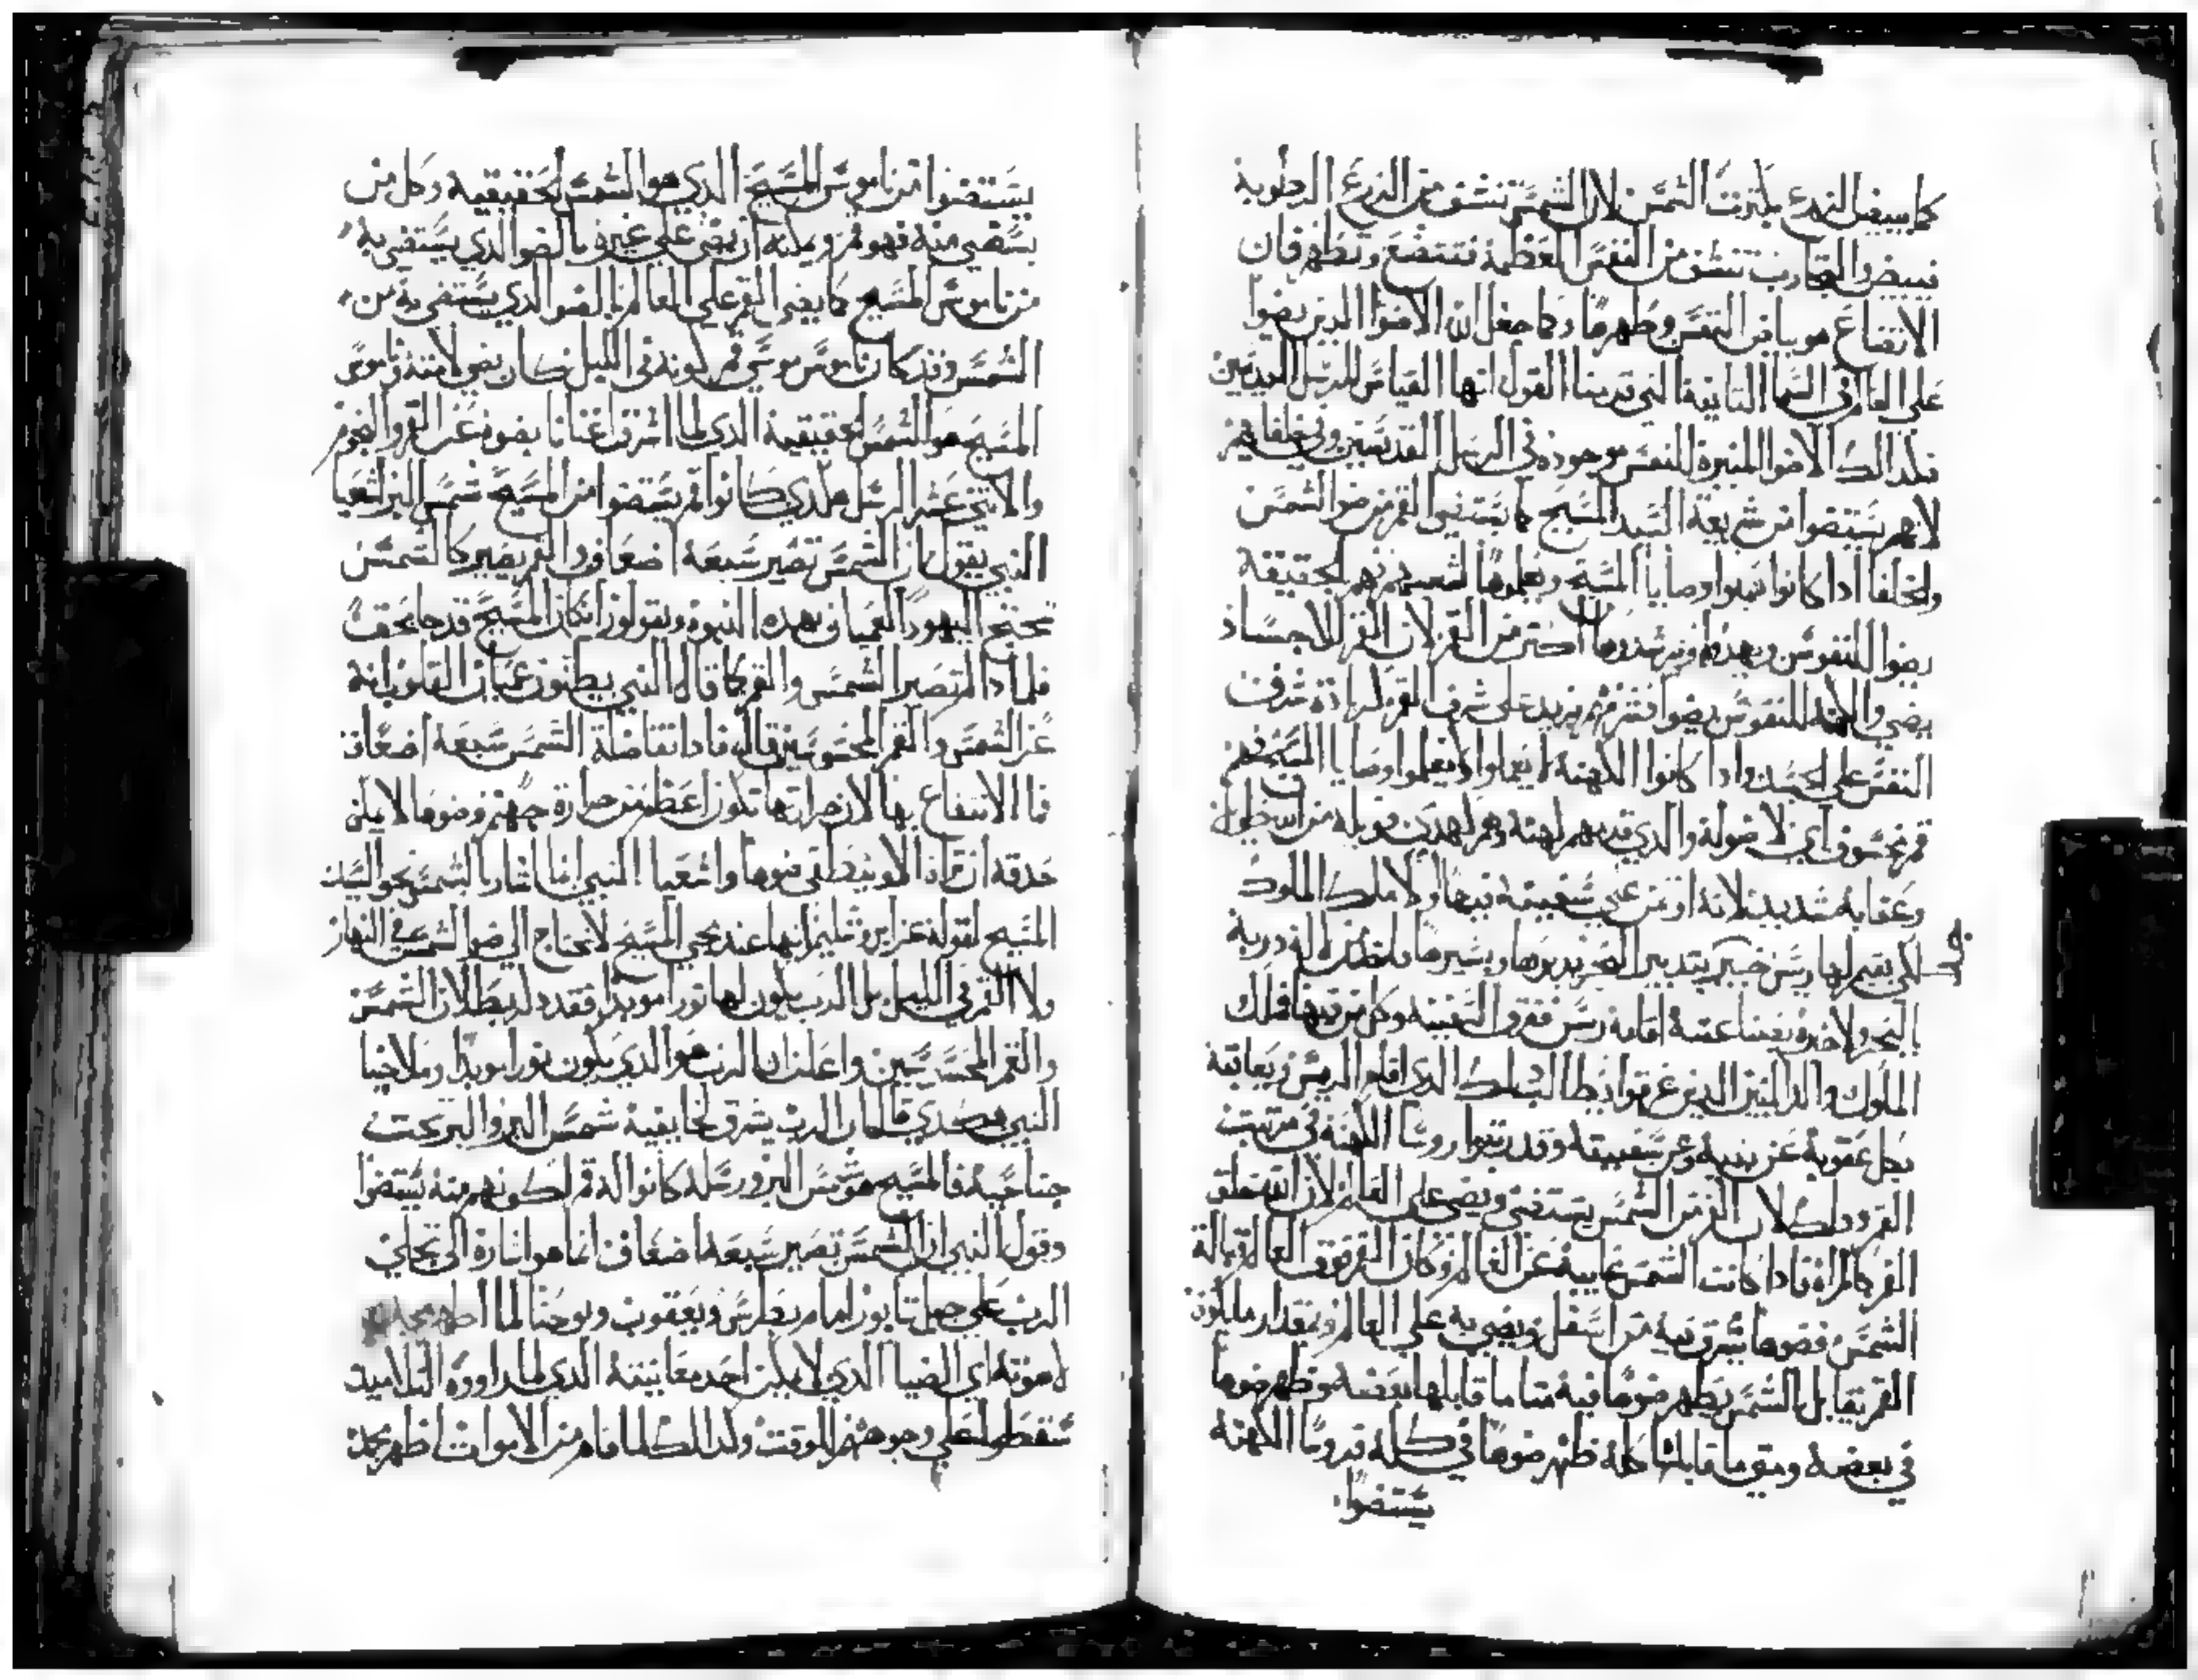 كما يبيض الزرع بكترت الشمس لان الشمس تنشف من الزرع الرطوبة
فيبيض والتجارب تنشف من النفس العظمة فتتضع وتطهر فان
الاتضاع هو بياض النفس وطهرها وكما جعل الله الاضوا الذين يضوا
على العالم في السما التانية التي قدمنا القول انها القياس للرسل القديسين
فكدالك الاضوا المنيرة للنفس موجوده في الرسل القديسين وفي خلفايهم
لانهم يستضوا من شريعة السيد المسيح كما يستضي القمر من ضوا الشمس
والخلفا ادا كانوا يعملوا وصايا المسيح ويعلموها لشعبهم فهم بالحقيقة
يضوا للنفوس ويهدوها ويرشدوها اكتر من القمر لان القمر للاجساد
يضي والكهنه للنفوس يضوا فشرفهم يزيد على شرف القمر كزيادة شرف
النفس على الجسد وادا كانوا الكهنة لم يعملوا ولا يعلموا وصايا المسيح فهم
قمر مخسوف اي لا ضو له والدي قدمهم كهنة وهم لهدى
وعقابه شديد لانه اوتمن على سفينة فيها اولاد ملك الملوك
لكي يقيم لها ريس خبير بتدبير البحر يدبرها ويسيرها
البحر ولا خبره بعناعمته اقامة ريس فغرق السفينة وكل من فيها فملك
الملوك والد البنين الدين غرقوا
بكل عقوبة عن بنيه وعن سفينته وقد رتبوا روسا الكهنة في مرتبت
القمر ودلك لان القمر من الشمس يستضي ويضي على العالم لان الله خلق
القمر كالمراة فادا كانت الشمس غايبة عن العالم وكان القمر فوق العالم قبالة
الشمس فضوها يشرق فيه من اسفل ويضي به على العالم وبمقدار ما يكون
القمر يقابل الشمس يظهر ضوها فيه متا ما قابلها بعضه وظهر ضوها
في بعضه ومتى ما قابلها كله ظهر ضوها في كله فروسا الكهنة
يستضوا
يستضوا من ناموس المسيح الدي هو الشمس الحقيقية وكل من
يستضي منه فهو قمر ويمكنه ان يضي على غيره بالضوا الدي يستضي به
من ناموس المسيح كما يضي القمر على العالم بالضوا الدي يستضي به من
الشمس وقد كان ناموس موسي قمر لكونه في الليل كان يضي لامته وناموس
المسيح هو الشمس الحقيقية الدي لما اشرق اغنانا بضوه عن القمر والنجوم
والاتني عشر الرسل هكدي كانوا قمر يستضوا من المسيح شمس البر اشعيا
النبي يقول ان الشمس تصير سبعة اضعاف والقمر يصير كالشمس
تحتج اليهود العميان بهده النبوه ويقولوا ان كان المسيح قد جا بحق
فلمادا لم تصير الشمس والقمر كما قال النبي يظنون عميان القلوب انه
عن الشمس والقمر المحسوسين قال فادا تفاضلة الشمس سبعة اضعاف
فما الانتفاع بها لان حرارتها تكون اعظم من حرارة جهنم وضوها لا يمكن
حدقه ان تراه الا وينطفي ضوها واشعيا النبي انما اشار بالشمس نحو السيد
المسيح لقوله عن ايروشليم انها عند مجي المسيح لا تحتاج الي ضوا الشمس في النهار
ولا القمر في الليل بل الرب يكون لها نورا موبدا فقد
والقمر المحسوسين واعلن ان الرب هو الدي يكون نورا موبدا وملاخيا
النبي هكدي قال ان الرب يشرق لخايفيه شمس البر والبر تحت
جناحيه فالمسيح هو شمس البر ورسله كانوا له قمر لكونهم منه يستضوا
وقول النبي ان الشمس تصير سبعة اضعاف انما هو اشارة الى تجلي
الرب علي جبل تابور امام بطرس ويعقوب ويوحنا لما اظهر مجد
لاهوته اي الضيا الدي لا يمكن احد معاينته الدي لما راوه التلاميد
سقطوا علي وجوههم للوقت وكدالك لما قام من الاموات اظهر مجد